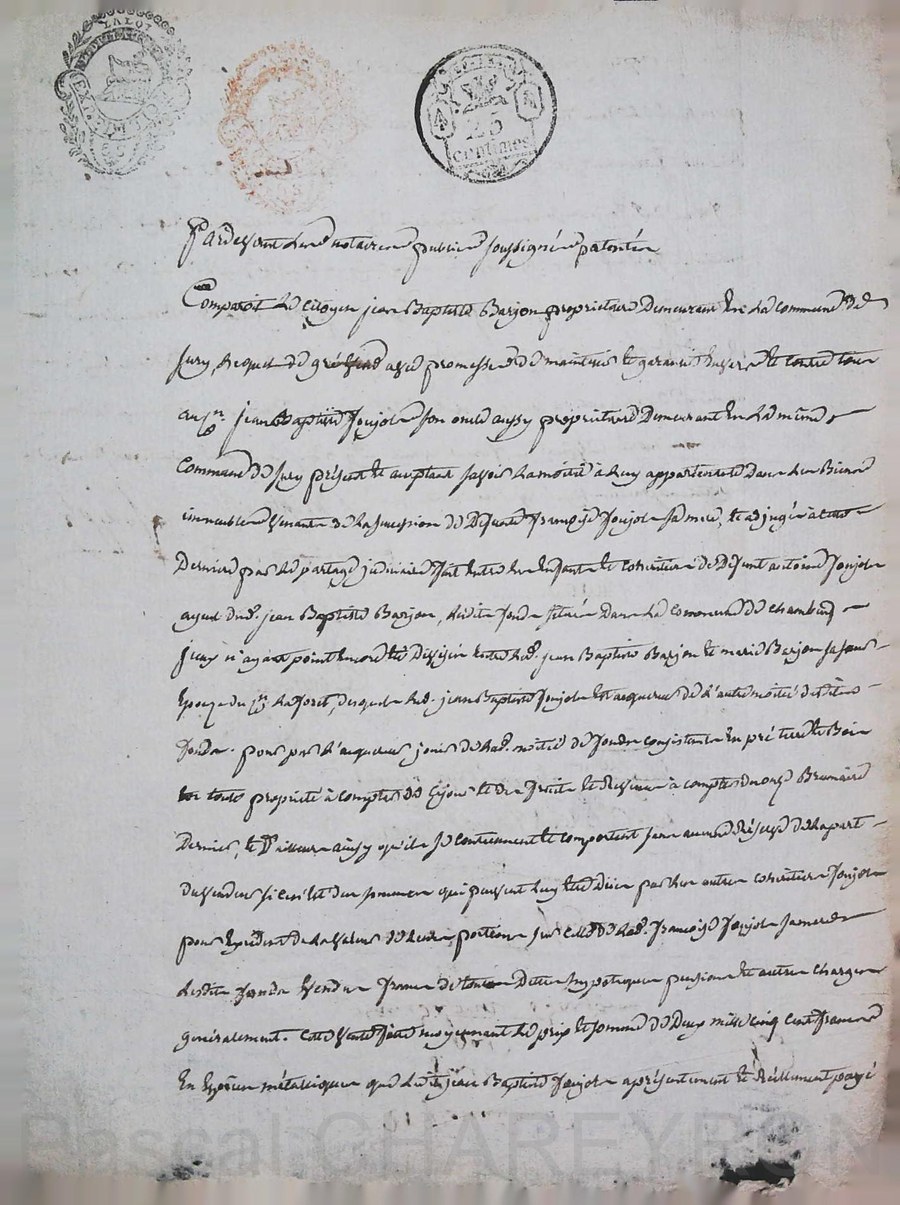 25
centimes
Pardevant les notaires publics soussignés patentés
Comparoit le Citoyen jean Baptiste Barjon propriétaire Demeurant en la commune de
jury, lequel de gré vend avec promesse de maintenir et garantir envers et contre tous
au cn jean Baptiste Soujol son oncle aussy propriétaire Demeurant en la même
Commune de jury présent et acceptant savoir la moitié à luy appartenante dans les Biens
immeubles venants de la succession de Defunte françoise Soujol sa mere, et adjugés à cette
Derniere par le partage judiciaire fait entre les Enfants et cohéritiers de Defunt antoine Soujol
ayeul dud. jean Baptiste Barjon, lesdits fonds situés dans la commune de
n'ayant point encore été Divisés entre led. jean Baptiste Barjon et marie Barjon sa sœur
Epouze du cn Laforet, desquels led. jean Baptiste Soujol est acquereur de l'autre moitié desdits
fonds. pour par l'acquereur jouir de lad. moitié de fonds consistants en pré terre et Bois
en toute propriété à compter de ce jour et des fruits et Revenus à compter du onze Brumaire
Dernier, et D'ailleurs ainsy qu'ils se contiennent et comportent sans aucune Réserve de la part
du vendeur si ce n'est des sommes qui peuvent luy être dües par les autres cohéritiers Soujol
pour Excédent de la valeur de leurs portions sur celle de lad. françoise Soujol sa mere
Lesdits fonds vendus francs de toutes Dettes hypoteques pensions et autres charges
généralement. Cette vente faite moyennant le prix et somme de Deux mille cinq cent francs
En Espèces métalliques que ledit jean Baptiste Soujol a présentement et Réellement payé
Pascal CHAREYRON